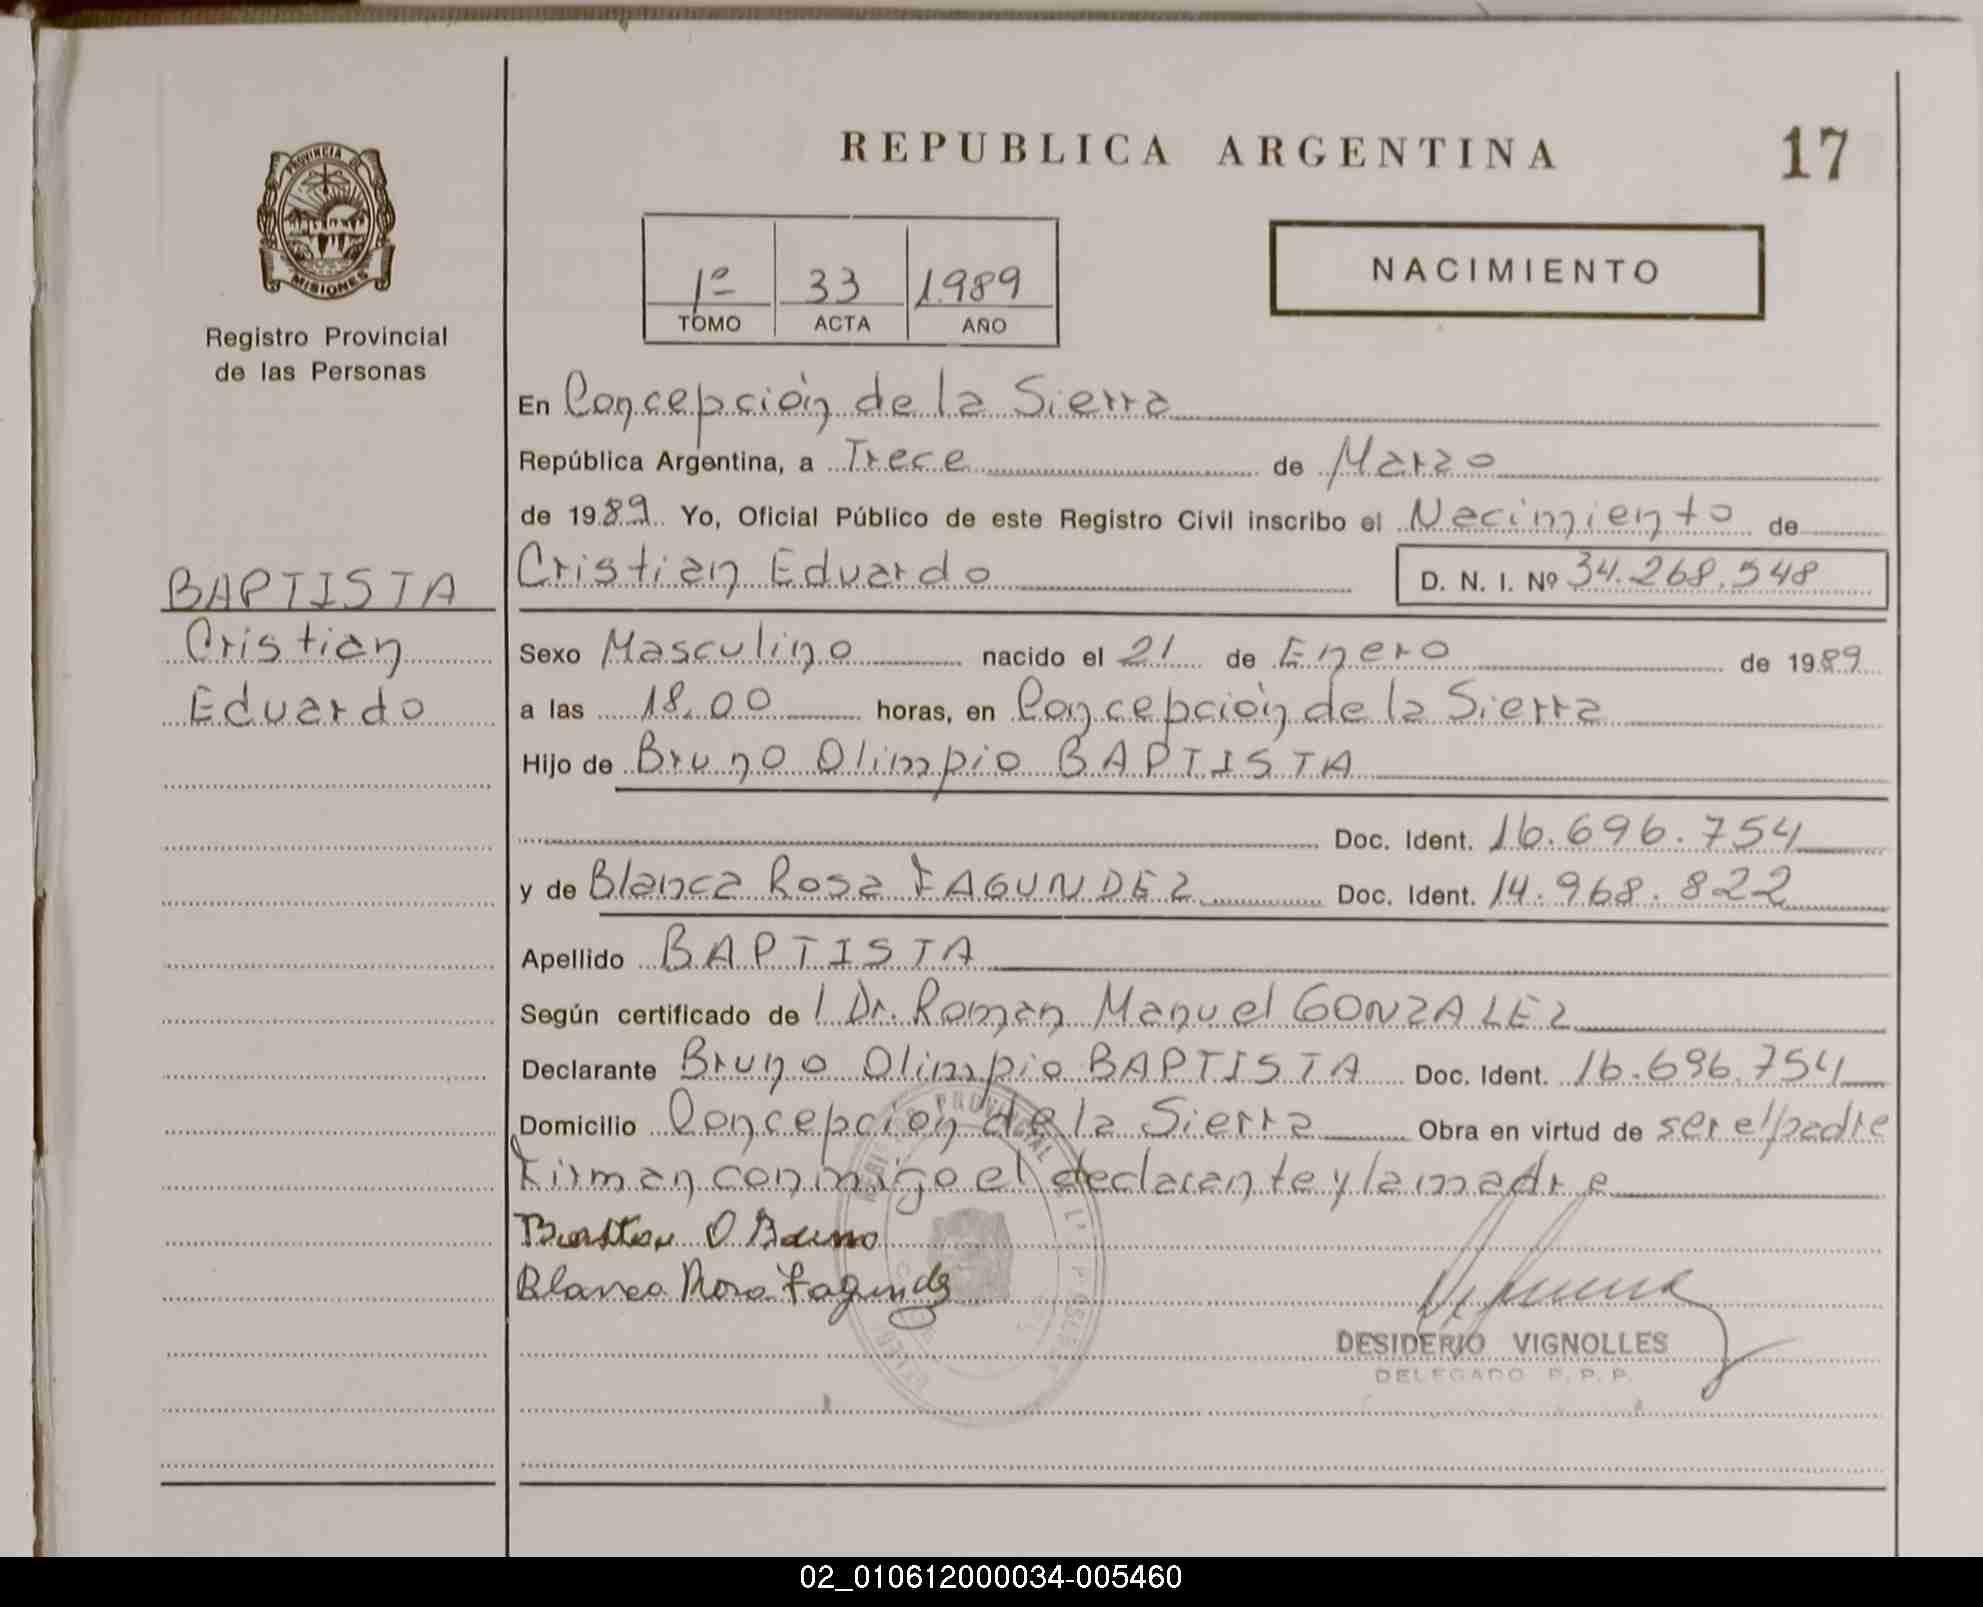 REPUBLICA ARGENTINA
17
PROVINCIA DE
MISIONES
Registro Provincial
de las Personas
1º 33 1989
TOMO ACTA AÑO
NACIMIENTO
En Concepción de la Sierra
República Argentina, a Trece de Marzo
de 1989 Yo, Oficial Público de este Registro Civil inscribo el Nacimiento de
Cristian Eduardo D. N. I. Nº 34.268.548
BAPTISTA
Cristian
Eduardo
Sexo Masculino nacido el 21 de Enero de 1989
a las 18.00 horas, en Concepción de la Sierra
Hijo de Bruno Olimpio BAPTISTA
Doc. Ident. 16.696.754
y de Blanca Rosa FAGUNDEZ Doc. Ident. 14.968.822
Apellido BAPTISTA
Según certificado de l Dr. Roman Manuel GONZALEZ
Declarante Bruno Olimpio BAPTISTA Doc. Ident. 16.696.754
Domicilio Concepción de la Sierra Obra en virtud de ser el padre
Firman conmigo el declarante y la madre
Blanca Rosa Fagundez
DESIDERIO VIGNOLLES
DELEGADO R. P. P.
02_010612000034-005460